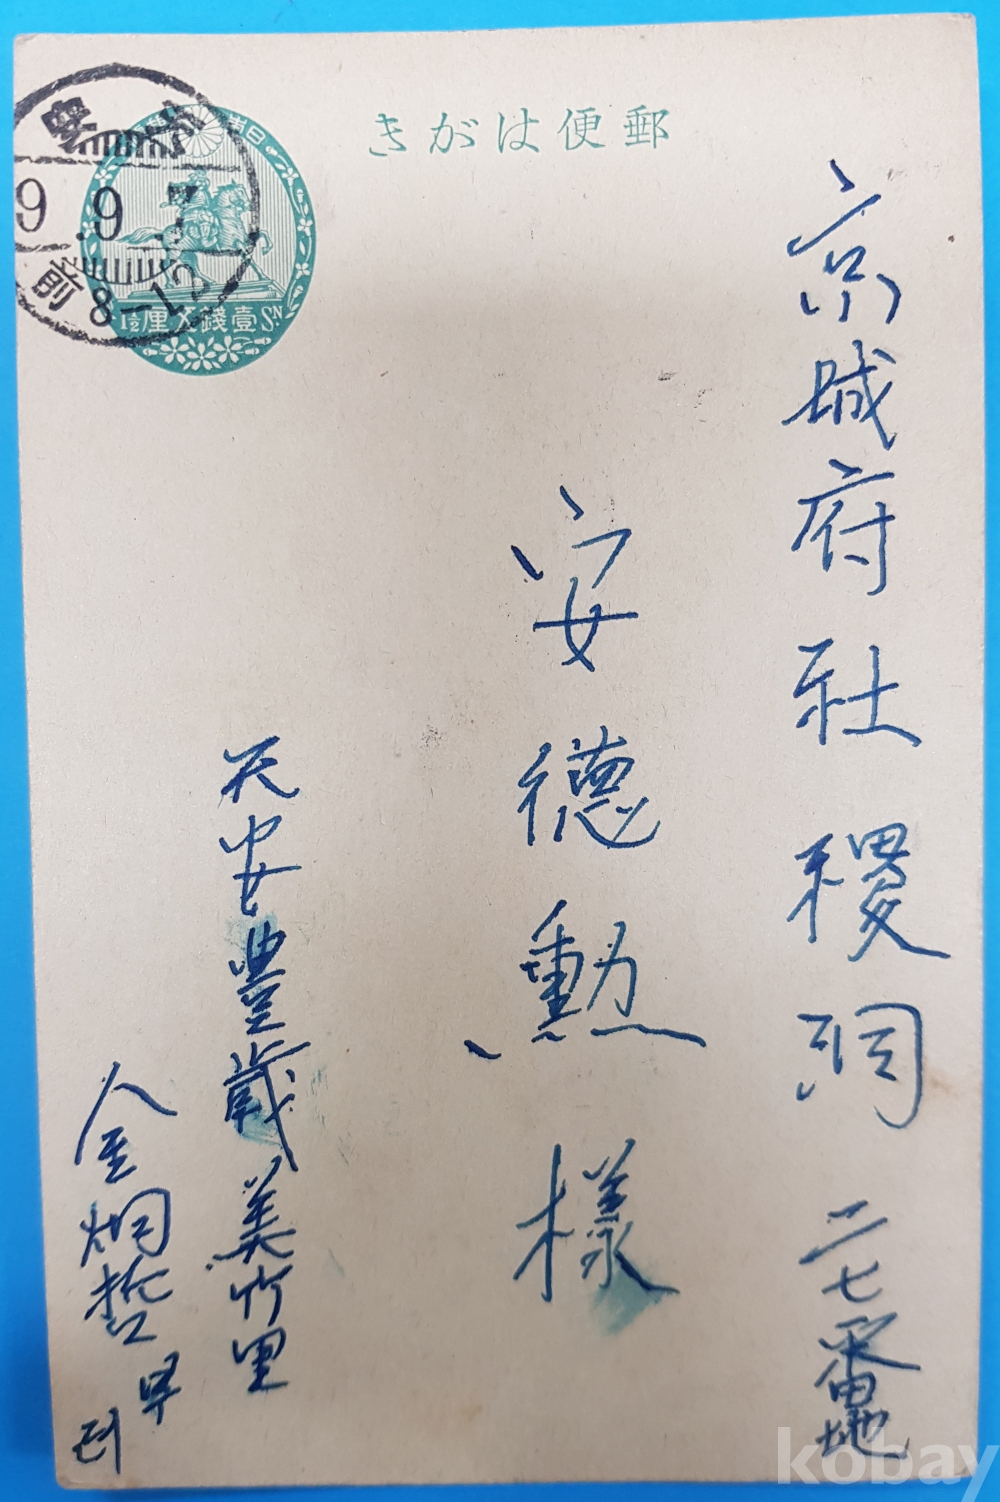 郵便はがき
9.9.
前8-12
壹錢五厘
1½ SN
京城府社稷洞二七番地
安德勳 樣
天安豊歲美竹里
金炯哲
kobay